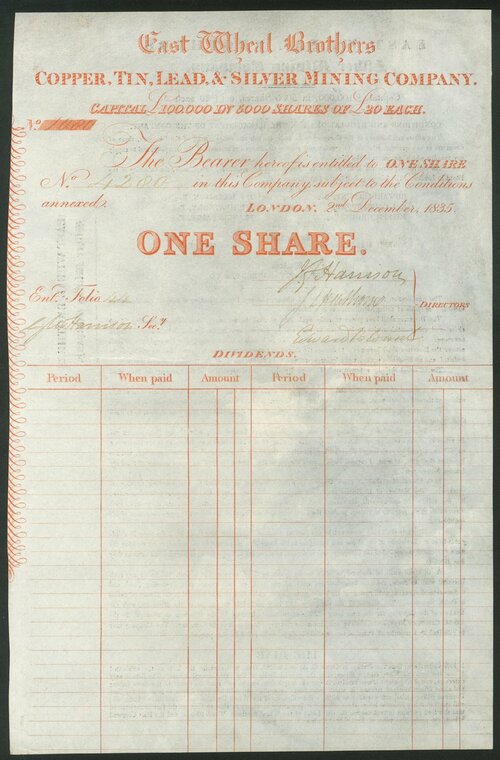 East Wheal Brothers
COPPER, TIN, LEAD, & SILVER MINING COMPANY.
CAPITAL £100,000 IN 5000 SHARES OF £20 EACH.
No.
The Bearer hereof is entitled to ONE SHARE
No. 4280 in this Company, subject to the Conditions
annexed.
LONDON. 2nd December, 1835.
ONE SHARE.
J. Harrison
Ent. Folio 44
DIRECTORS
Harrison Secy.
Edward
DIVIDENDS.
Period When paid Amount Period When paid Amount